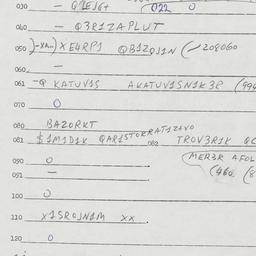 030 — (022 0
040 — Q3R1ZAPLUT
050 )-XA..) XE4RP1 QB1ZQJ1N (208060
060 —
061 -Q KATUV1S AKATUV1SN1K3P (994
070 0
080 BAZORKT
081 $1M1D1K QAR1STOKRAT1Z1VO 082 TROV3R1K QC
090 0 (MER3R AFOL
091 — (460 (8
100 0
110 X1SROJN1M XX.
120 0